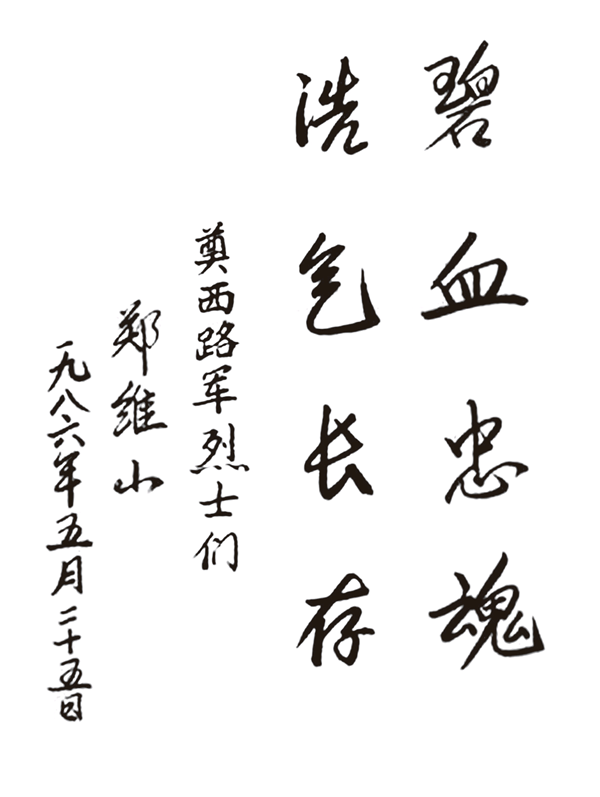 碧血忠魂
浩气长存
奠西路军烈士们
郑维山
一九八六年五月二十五日